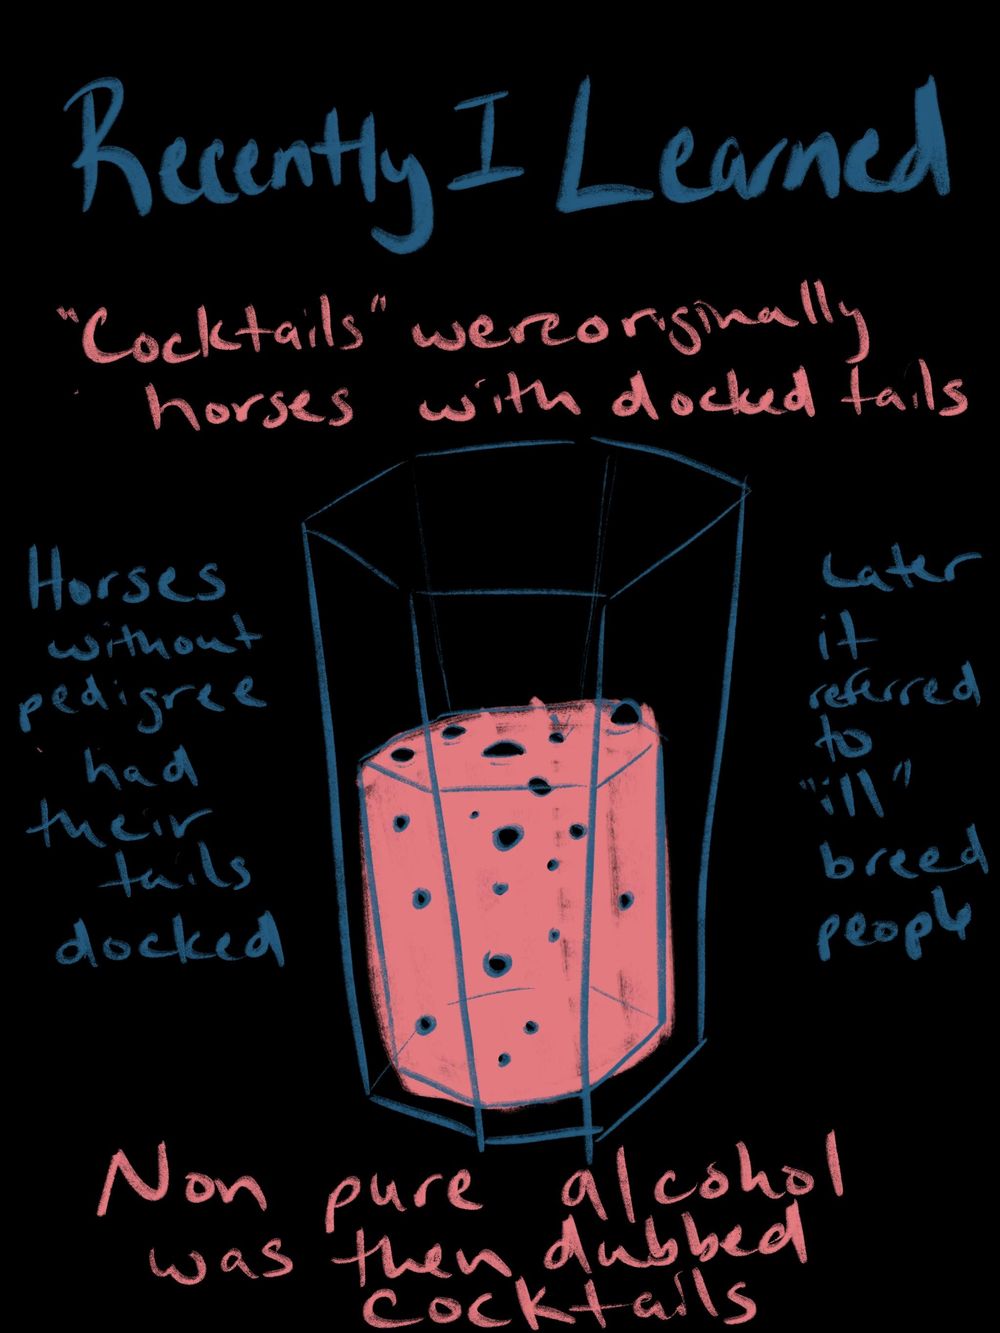 Recently I Learned
"Cocktails" were originally
horses with docked tails
Horses
without
pedigree
had
their
tails
docked
Later
it
referred
to
"ill"
breed
people
Non pure alcohol
was then dubbed
cocktails